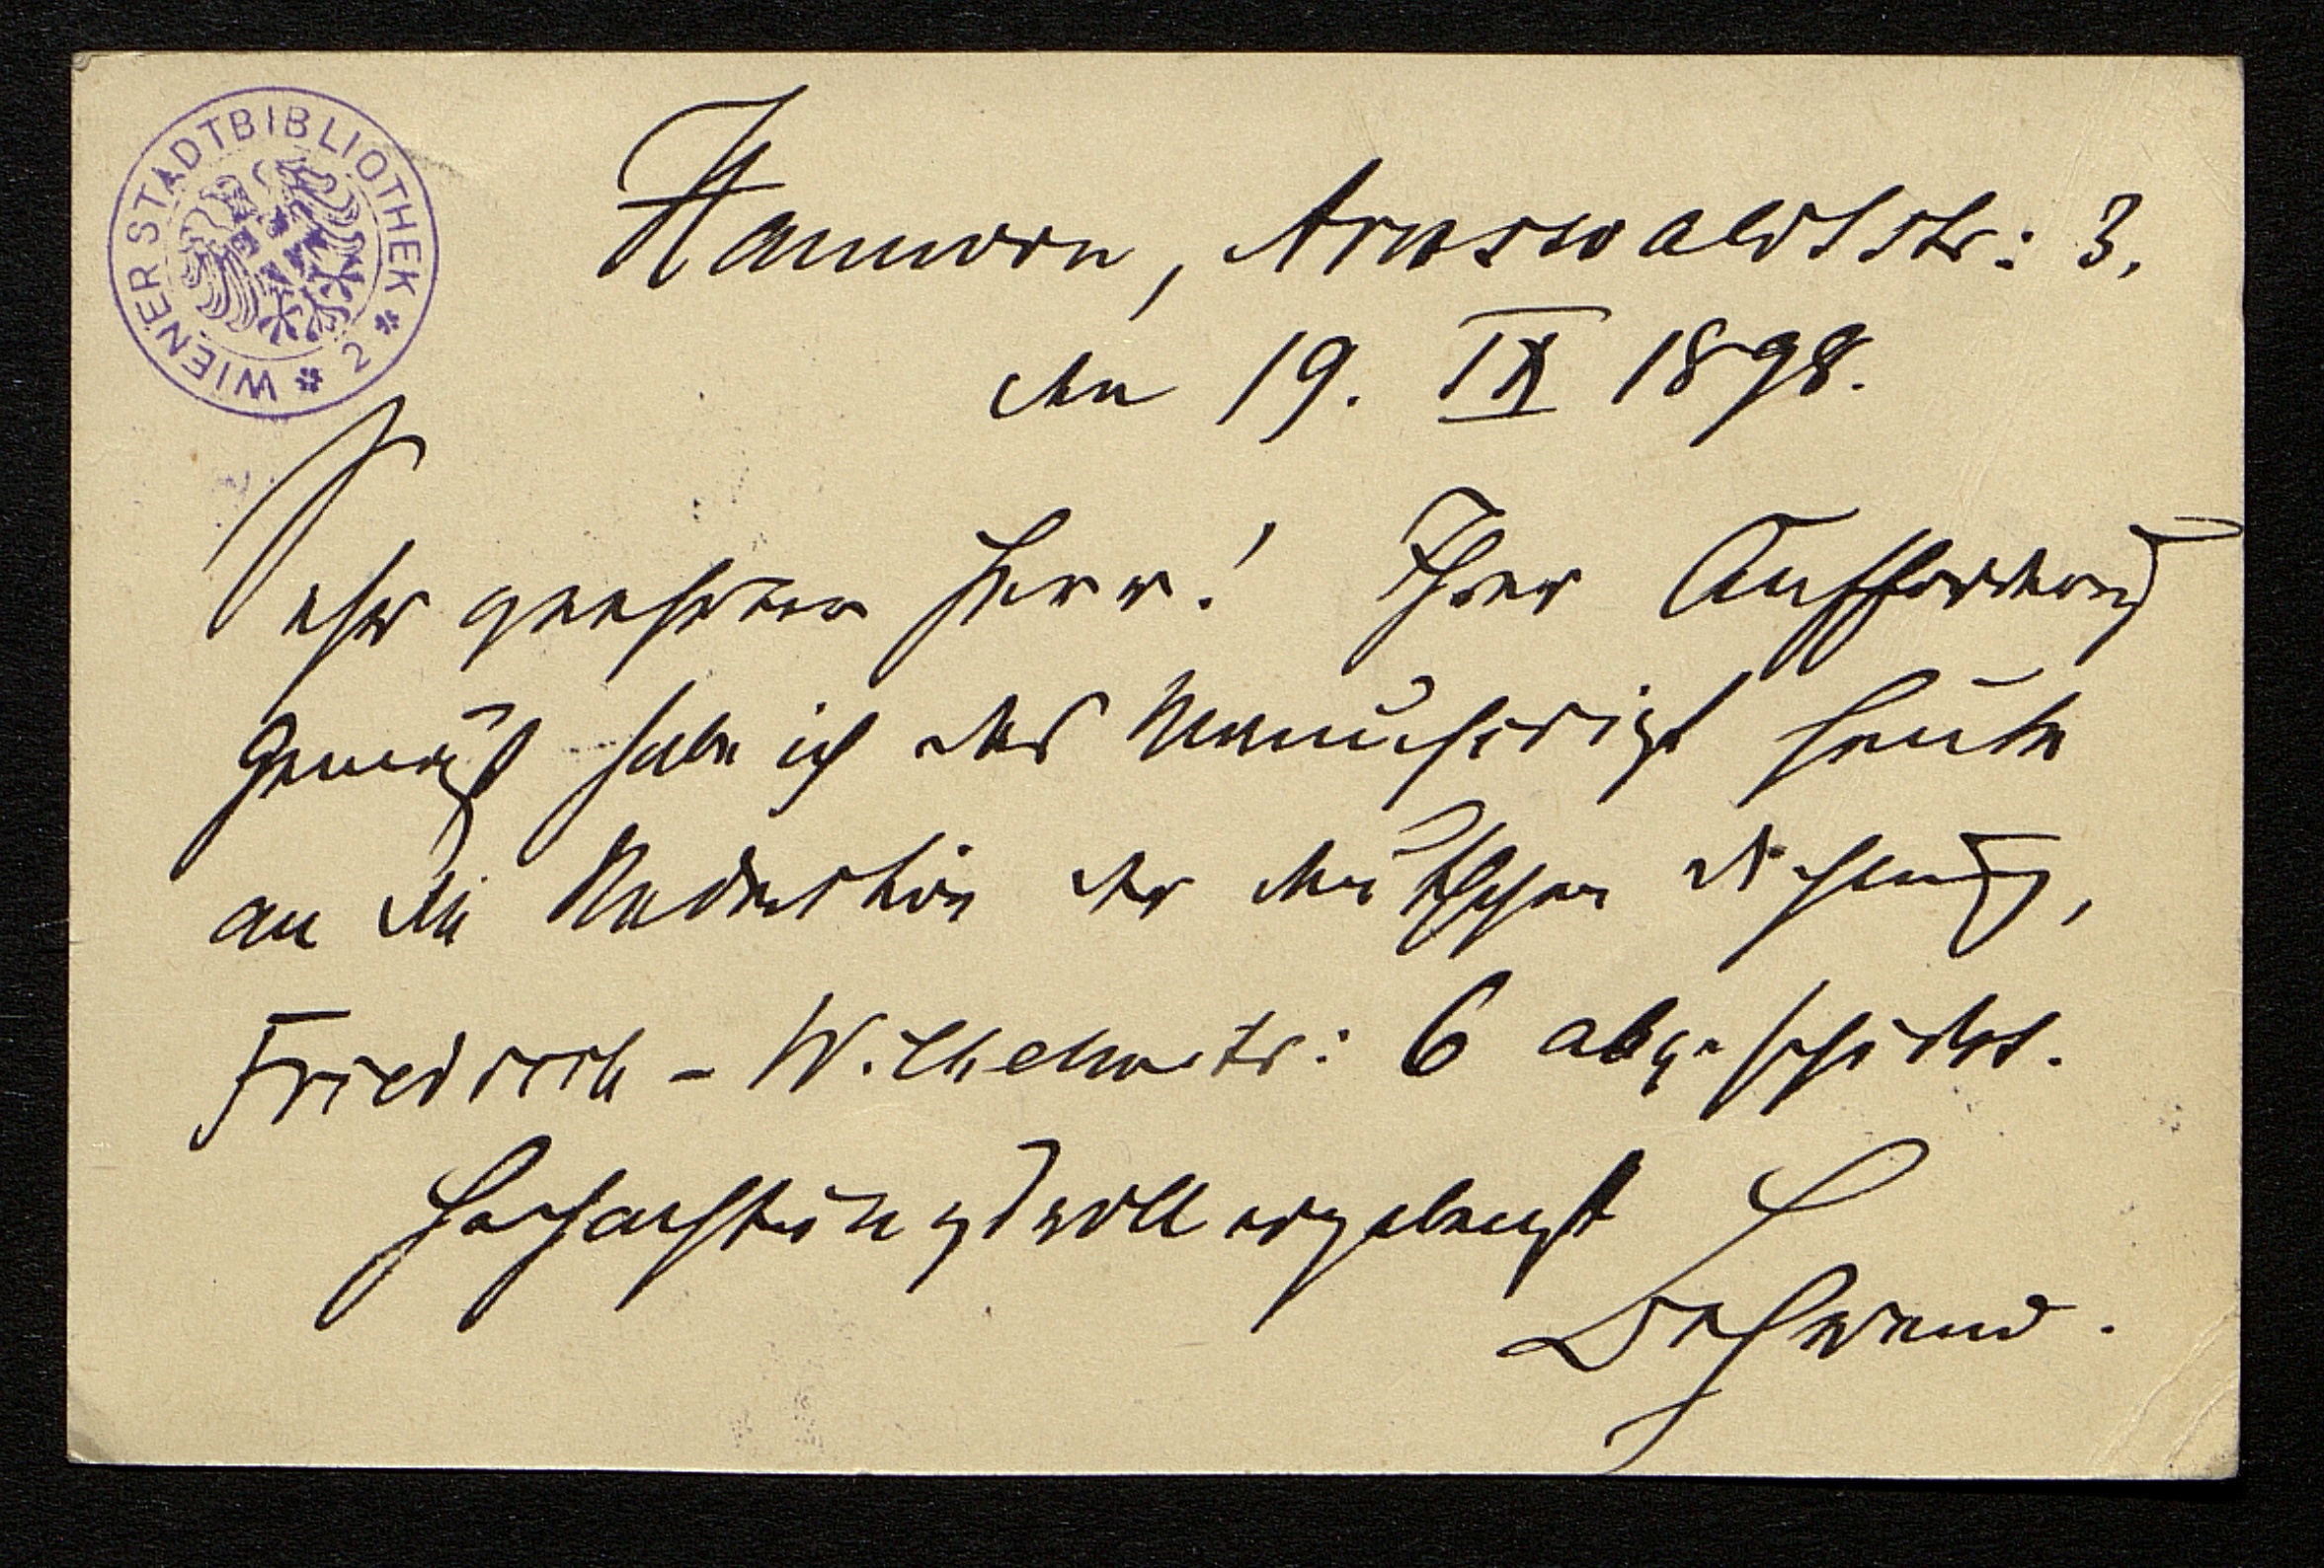 WIENER STADTBIBLIOTHEK * 2 *
Hannover, Arnswaldtstr: 3,
den 19. IX 1898.
Sehr geehrter Herr! Ihrer Aufforderung
gemäß habe ich das Manuscript heute
an die Redaktion der deutschen Dichtung,
Friedrich-Wilhelmstr: 6 abgeschickt.
Hochachtungsvoll ergebenst